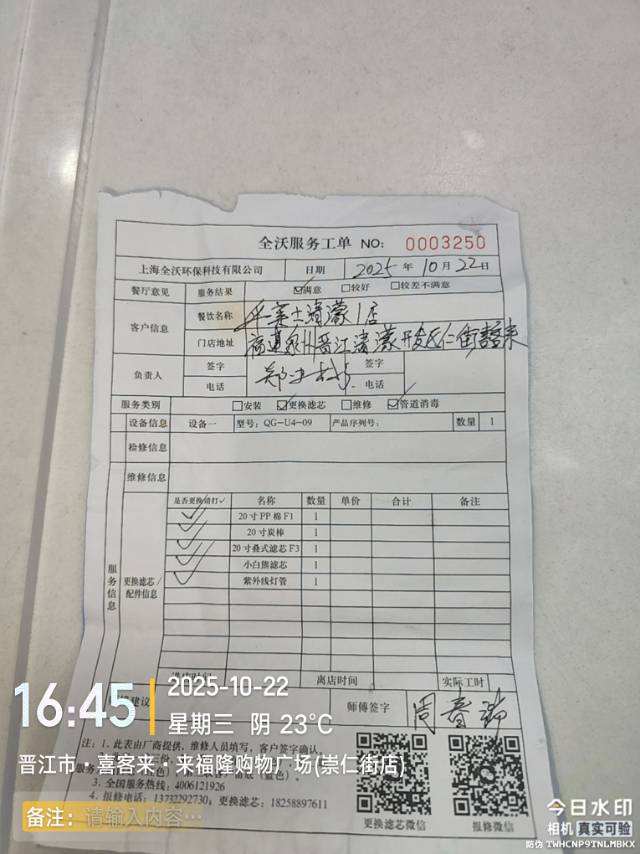 全沃服务工单 NO: 0003250
上海全沃环保科技有限公司 日期 2025 年 10 月 22 日
餐厅意见 服务结果 ☑满意 □较好 □较差不满意
客户信息 餐饮名称 清濛1店
门店地址 福建泉州晋江清濛开发区
负责人 签字 签字
电话 电话
服务类别 □安装 ☑更换滤芯 □维修 ☑管道消毒
设备信息 设备一 型号: QG-U4-09 产品序列号: 数量 1
检修信息
维修信息
服务信息 更换滤芯/配件信息
是否更换请打✓ 名称 数量 单价 合计 备注
✓ 20寸PP棉F1 1
✓ 20寸炭棒 1
✓ 20寸叠式滤芯F3 1
✓ 小白熊滤芯 1
✓ 紫外线灯管 1
离店时间 实际工时
建议 师傅签字 周春瑞
注: 1、此表由厂商提供, 维修人员填写, 客户签字确认。
3、全国服务热线: 4006121926
4、报修电话: 13732292730; 更换滤芯: 18258897611
更换滤芯微信 报修微信
16:45 2025-10-22
星期三 阴 23°C
晋江市·喜客来·来福隆购物广场(崇仁街店)
备注: 请输入内容…
今日水印
相机 真实可验
防伪 TWHCNP9TNLMBKX